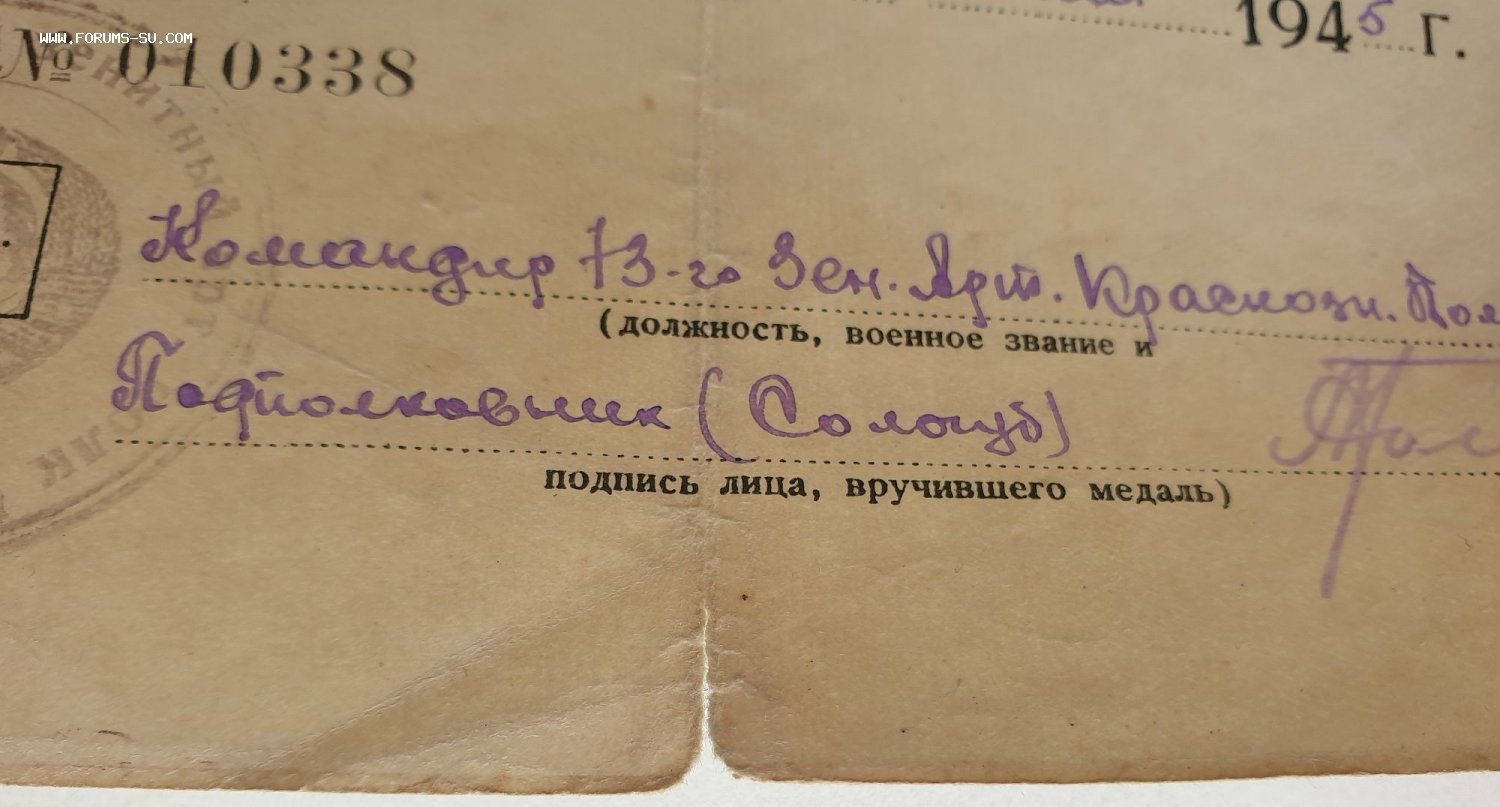 WWW.FORUMS-SU.COM
1945 г.
№ 010338
Командир 73-го Зен. Арт. Краснозн. Пол
(должность, военное звание и
Подполковник (Сологуб)
подпись лица, вручившего медаль)
ЗЕНИТНЫЙ
ПОЛК